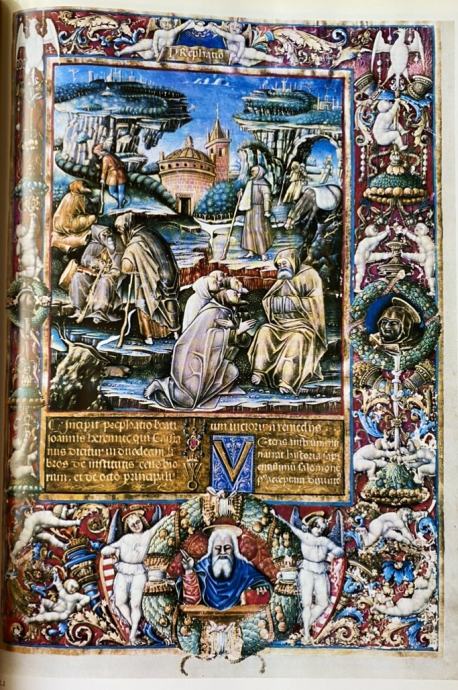 Prephatio
Incipit prephatio beati
ioannis heremite qui Cassia
nus dicitur in duodecim li
bros de institutis cenobio
rum. et de octo principali
um uitiorum remediis
Veteris instrumenti
narrat historia sapi
entissimum Salomone
acceptam